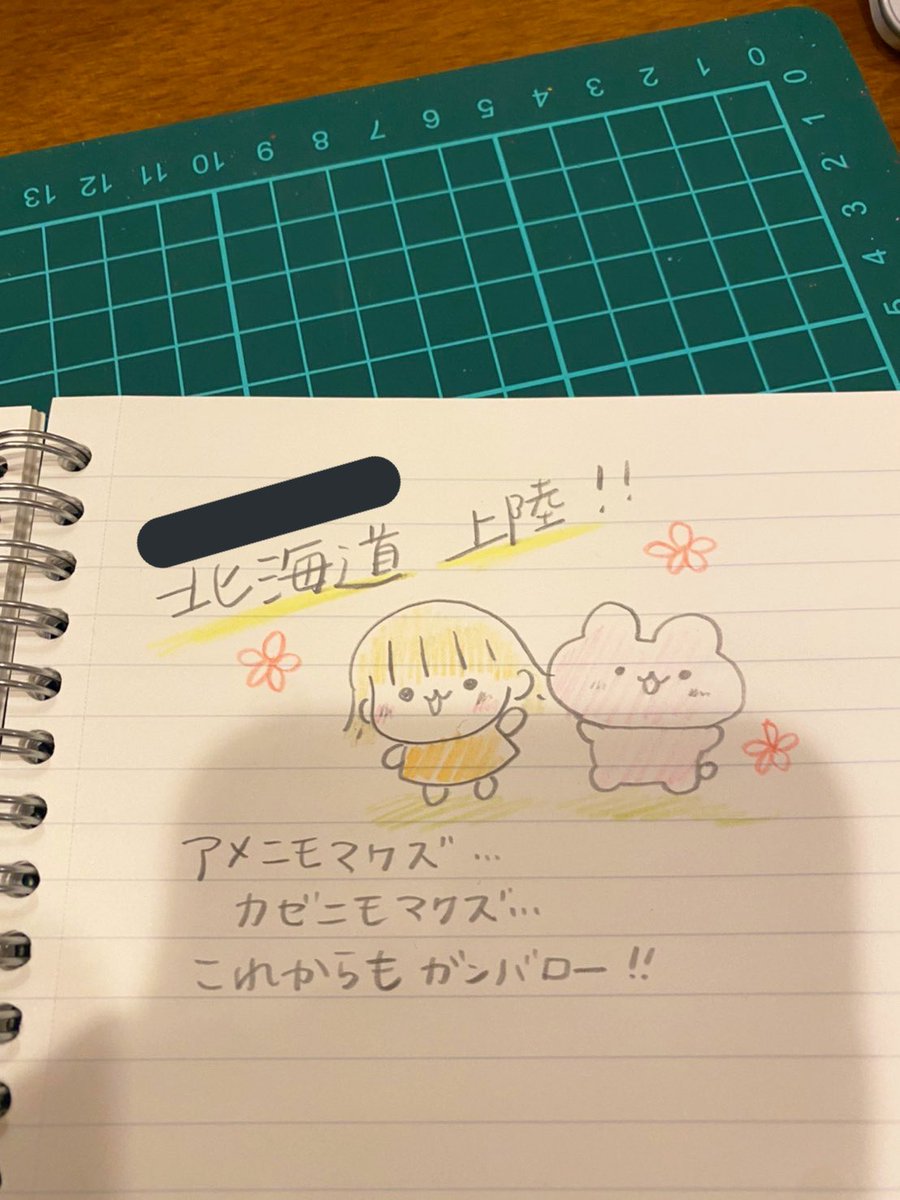 0 1 2 3 4 5 6 7 8 9 10 11 12 13
0
1
2
3
4
5
北海道 上陸!!
アメニモマケズ…
カゼニモマケズ…
これからも ガンバロー!!